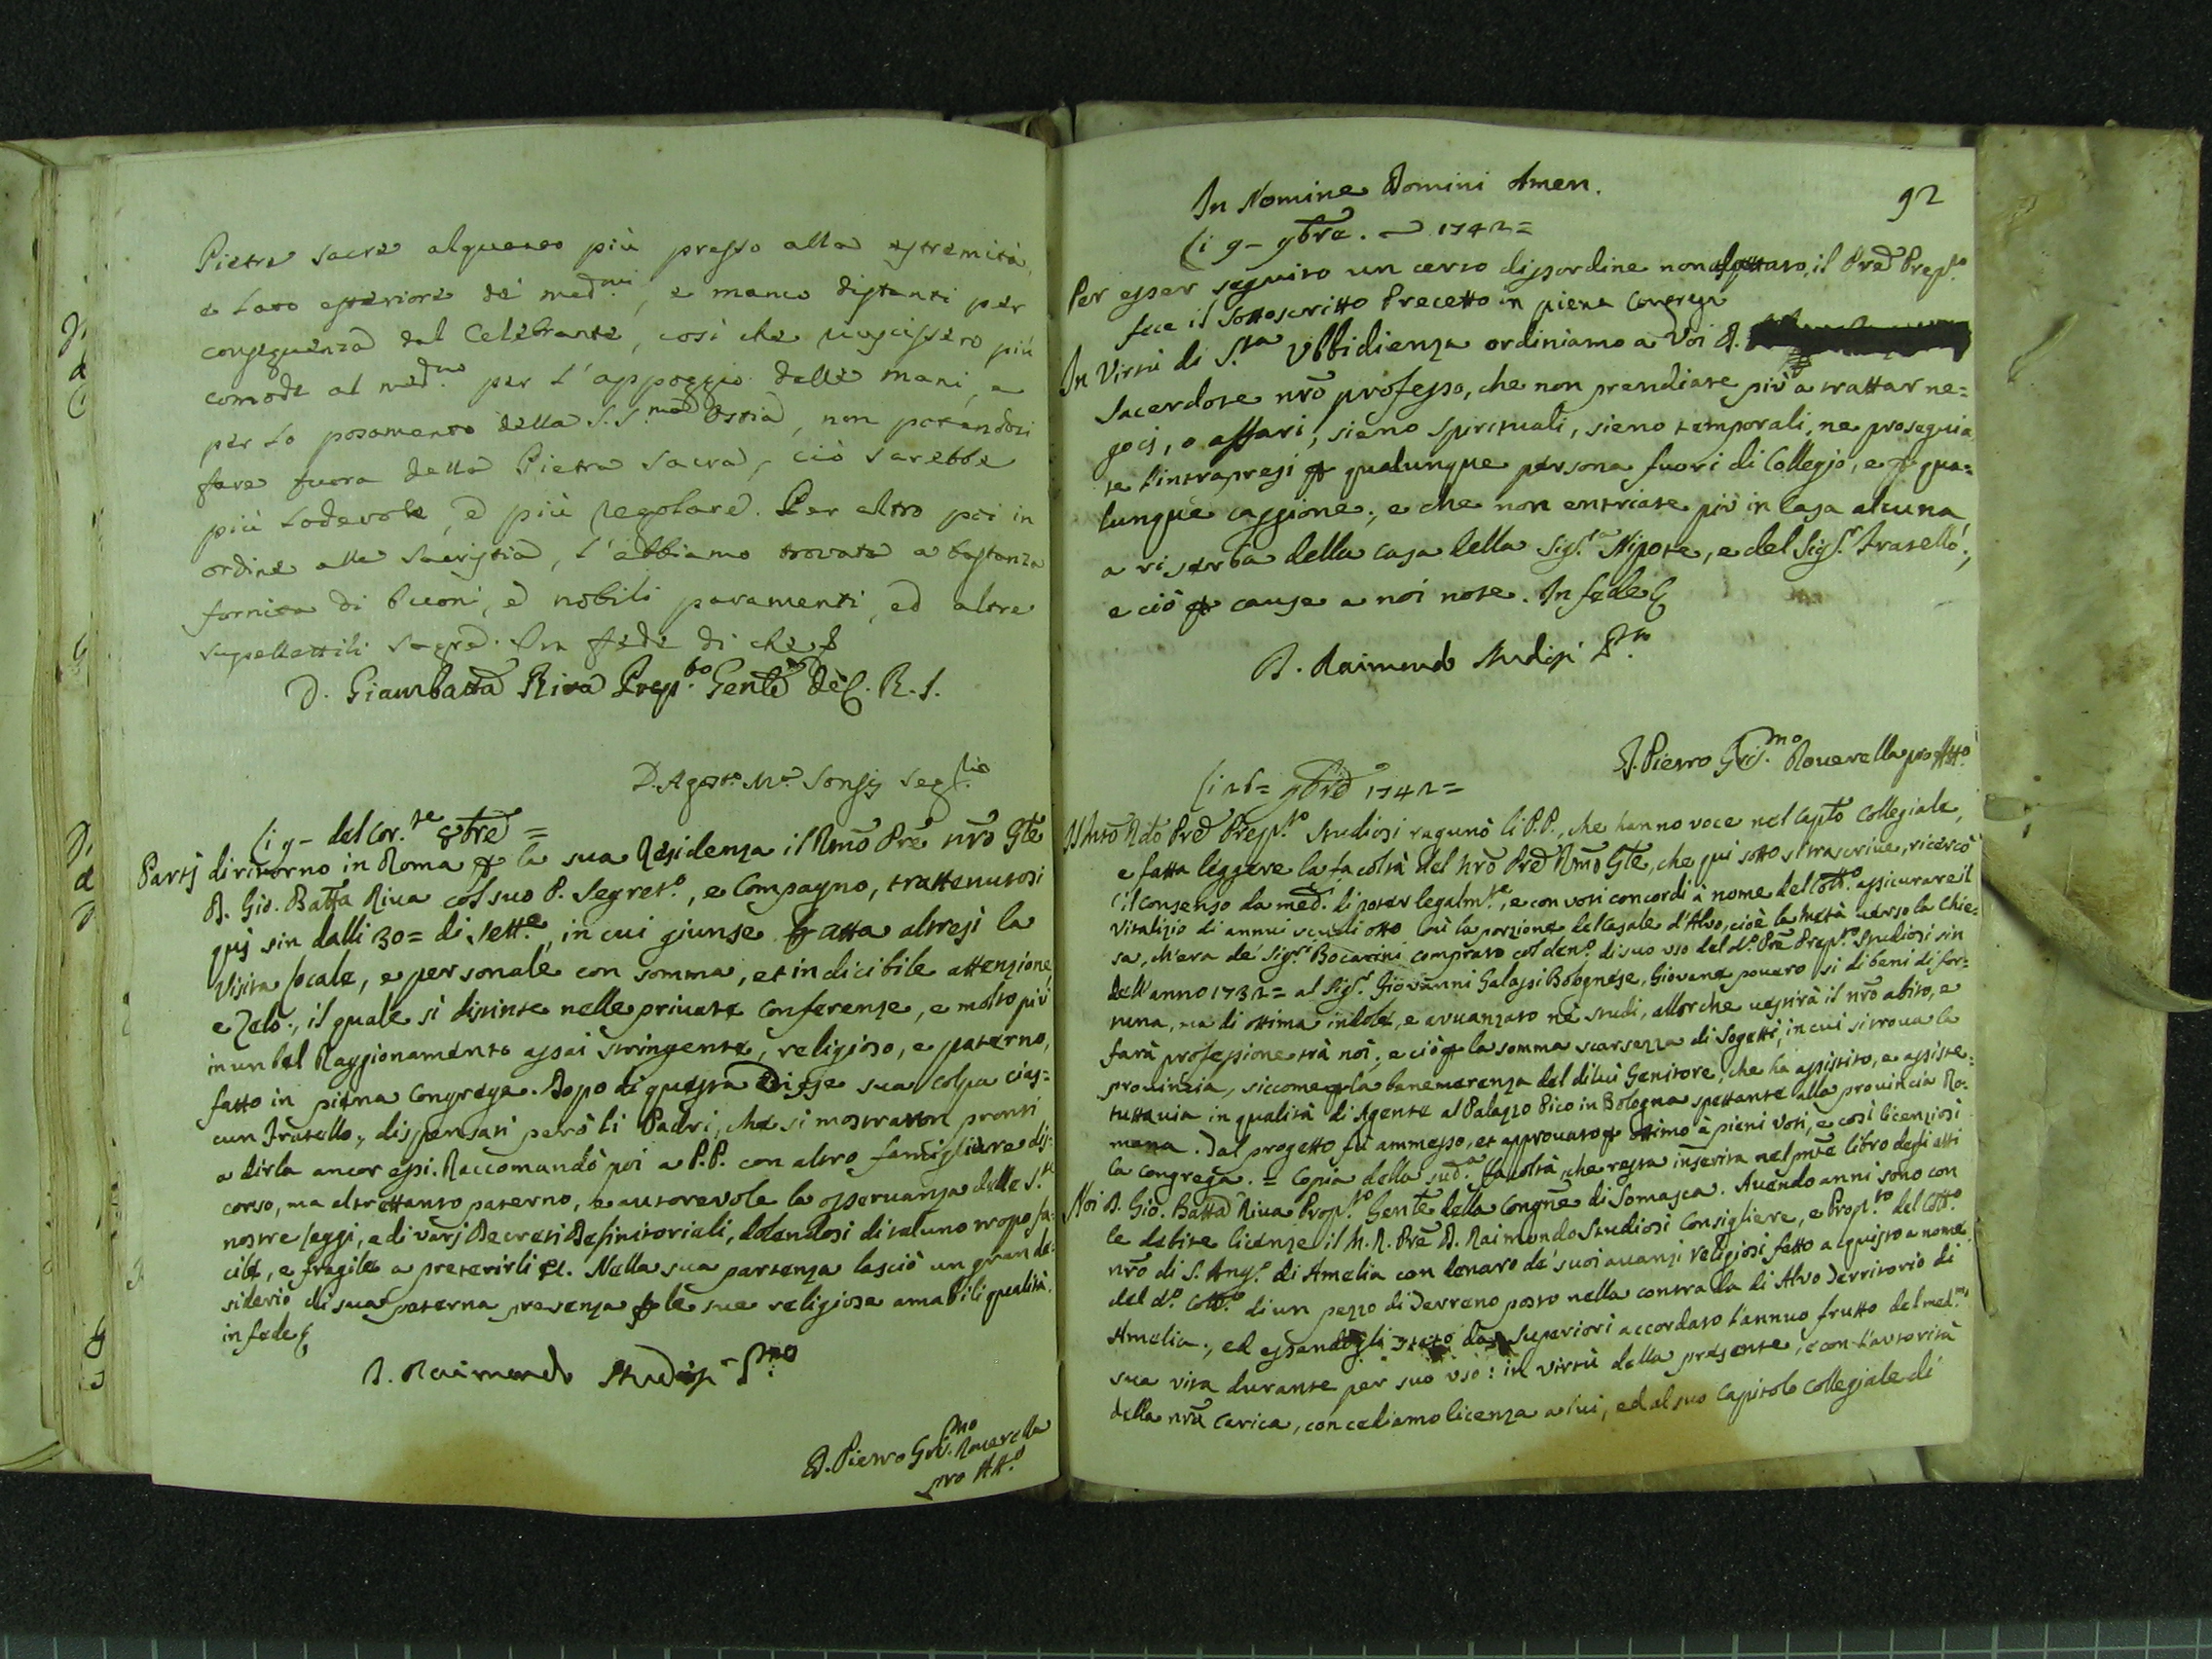 Pietre sacre alquanto più presso alla estremità,
e lato esteriore de' med.mi, e manco distanti per
conseguenza dal Celebrante, così che riuscissero più
comode al med.mo per l'appoggio delle mani, e
per lo posamento della S.S.ma Ostia, non potendosi
fare fuora della Pietra Sacra, ciò sarebbe
più lodevole, e più regolare. Per altro poi in
ordine alla Sacristia, l'abbiamo trovata a bastanza
fornita di buoni, e nobili paramenti, ed altre
supellettili sagre. In fede di che
D. Giambatta Riva Prep.to Genle de C. R. S.
D. Agost.o M.a Songij Seg.rio
Li 9- del cor.te 8bre =
Partj di ritorno in Roma per la sua Residenza il Rmo Pre nro Gle
D. Gio. Batta Riva col suo P. Segret.o, e Compagno, trattenutosi
quj sin dalli 30= di Sett.e, in cui giunse fatta altresì la
Visita locale, e personale con somma, et indicibile attenzione
e Zelo, il quale si distinse nelle private conferenze, e molto più
in un bel Raggionamento assai stringente, religioso, e paterno,
fatto in piena Congrega. Dopo di questa Disse sua colpa cias=
cun Fratello, dispensati però li Padri, che si mostraron pronti
a dirla ancor essi. Raccomandò poi a P.P. con altro famigliare dis=
corso, ma altrettanto paterno, e autorevole la osservanza delle S.te
nostre leggi, e di varj Decreti Definitoriali, dolendosi di taluno tropo fa=
cile, e fragile a preterirli &. Nella sua partenza lasciò un gran de=
siderio di sua paterna presenza per le sue religiose amabili qualità.
in fede &
D. Raimondo Studiosi P.to
D. Pietro Gir.mo Roverella
pro Att.o
92
In Nomine Domini Amen.
Li 9- 9bre. 1742=
Per esser seguito un certo disordine non il Pred Prep.to
fece il sottoscritto Precetto in piena Congrega
In Virtù di S.ta Ubbidienza ordiniamo a Voi D.
Sacerdote nro professo, che non prendiate più a trattar ne=
gocj, o affari, sieno spirituali, sieno temporali, ne proseguia
te l'intrapresi per qualunque persona fuori di Collegio, e per qua=
lunque caggione; e che non entriate più in Casa alcuna
a riserba della casa della Sig.ra Nipote, e del Sig.r Fratello;
e ciò per cause a noi note. In fede &
D. Raimondo Studiosi P.to
D. Pietro Gir.mo Roverella pro Att.o
Li 26= 9bre 1742=
Il nro Pred Prep.to Studiosi ragunò li P.P., che hanno voce nel Capto Collegiale,
e fatta leggere la facoltà del nro Pred Rmo Gle, che quì sotto si trascrive, ricercò
il consenso da med.i di poter legalm.te, e con voti concordi à nome del Coll.o assicurare il
Vitalizio di annui scudi otto sù la porzione del Casale d'Alvo, cioè la metà verso la Chie=
sa, ch'era de' Sig.ri Bocarini comprato col den.o di suo uso del d.o Pre Prep.to Studiosi sin
dell'anno 1732= al Sig.r Giovanni Galassi Bolognese, Giovane povero sì di beni di for=
tuna, ma di ottima indole, e avvanzato ne studi, allorche vestirà il nro abito, e
farà professione trà noi; e ciò per la somma scarsezza di Sogetti, in cui si trova la
provincia, siccome per la benemerenza del di lui Genitore, che ha assistito, e assiste
tuttavia in qualità di Agente al Palazzo Pico in Bologna spettante alla provincia Ro=
mana. Dal progetto fù ammesso, et approvato per ottimo a pieni voti, e così licenziosi
la congrega. = Copia della sud.a facoltà, che resta inserita nel pnte libro degli atti
Noi D. Gio. Batta Riva Prep.to Genle della Congne di Somasca. Avendo anni sono con
le debite licenze il M.R. Pre D. Raimondo Studiosi Consigliere, e Prep.to del Coll.o
nro di S. Ang.o di Amelia con denaro de' suoi avanzi religiosi fatto acquisto a nome
del d.o Coll.o di un pezzo di Terreno posto nella contrada di Alvo Territorio di
Amelia; ed essendogli stato da Superiori accordato l'annuo frutto del med.mo
sua vita durante per suo uso: in virtù della presente, e con l'autorità
della nra Carica, concediamo licenza a lui, ed al suo Capitolo Collegiale di